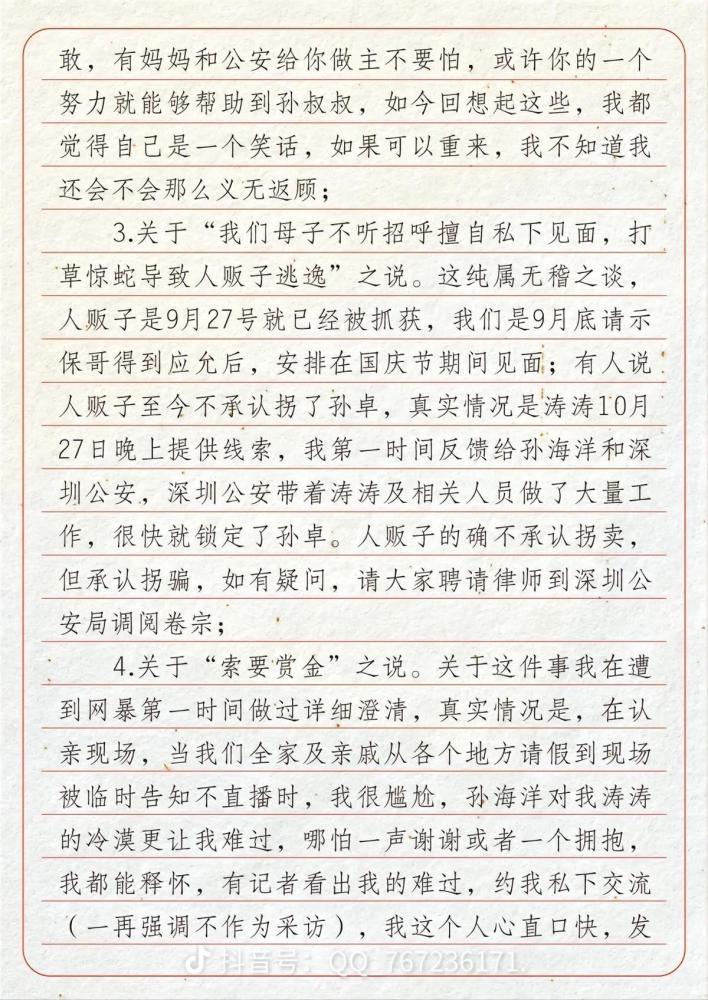 敢，有妈妈和公安给你做主不要怕，或许你的一个
努力就能够帮助到孙叔叔，如今回想起这些，我都
觉得自己是一个笑话，如果可以重来，我不知道我
还会不会那么义无返顾；
3.关于“我们母子不听招呼擅自私下见面，打
草惊蛇导致人贩子逃逸”之说。这纯属无稽之谈，
人贩子是9月27号就已经被抓获，我们是9月底请示
保哥得到应允后，安排在国庆节期间见面；有人说
人贩子至今不承认拐了孙卓，真实情况是涛涛10月
27日晚上提供线索，我第一时间反馈给孙海洋和深
圳公安，深圳公安带着涛涛及相关人员做了大量工
作，很快就锁定了孙卓。人贩子的确不承认拐卖，
但承认拐骗，如有疑问，请大家聘请律师到深圳公
安局调阅卷宗；
4.关于“索要赏金”之说。关于这件事我在遭
到网暴第一时间做过详细澄清，真实情况是，在认
亲现场，当我们全家及亲戚从各个地方请假到现场
被临时告知不直播时，我很尴尬，孙海洋对我涛涛
的冷漠更让我难过，哪怕一声谢谢或者一个拥抱，
我都能释怀，有记者看出我的难过，约我私下交流
（一再强调不作为采访），我这个人心直口快，发
抖音号：QQ_767236171.